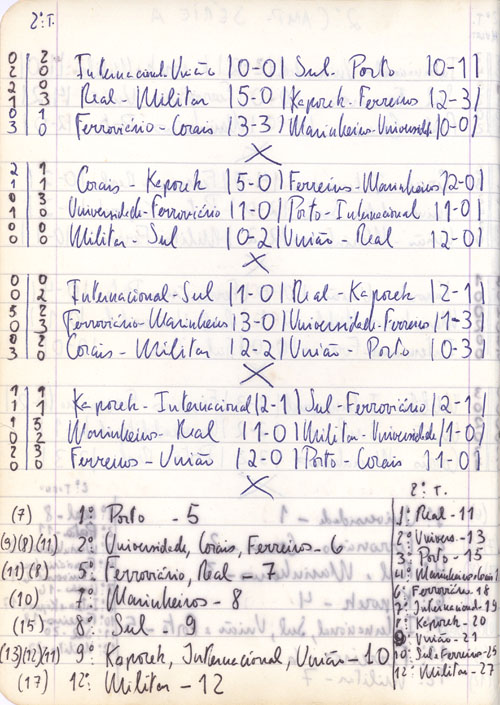 2º T.
0 2 Internacional-União |0-0| Sul-Porto |0-1|
2 0
2 0 Real-Militar |5-0| Kaporek-Ferreiros |2-3|
1 3
0 1 Ferroviário-Corais |3-3| Marinheiros-Universidade |0-0|
3 0
X
2 1 Corais-Kaporek |5-0| Ferreiros-Marinheiros |2-0|
1 1
0 3 Universidade-Ferroviário |1-0| Porto-Internacional |1-0|
1 0
0 0 Militar-Sul |0-2| União-Real |2-0|
0 0
X
0 0 Internacional-Sul |1-0| Real-Kaporek |2-1|
0 2
5 2 Ferroviário-Marinheiros |3-0| Universidade-Ferreiros |1-3|
0 3
0 2 Corais-Militar |2-2| União-Porto |0-3|
3 0
X
1 1 Kaporek-Internacional |2-1| Sul-Ferroviário |2-1|
1 1
1 5 Marinheiros-Real |1-0| Militar-Universidade |1-0|
0 2
2 3 Ferreiros-União |2-0| Porto-Corais |1-0|
0 0
X
(7) 1º Porto - 5
(9)(8)(11) 2º Universidade, Corais, Ferreiros - 6
(11)(8) 5º Ferroviário, Real - 7
(10) 7º Marinheiros - 8
(15) 8º Sul - 9
(13)(12)(11) 9º Kaporek, Internacional, União - 10
(17) 12º Militar - 12
2º T.
1º Real - 11
2º Univers. - 13
3º Porto - 15
4º Marinheiros-Corais
6º Ferroviário 18
7º Internacional - 19
8º Kaporek - 20
9 União - 21
10º Sul e Ferreiros - 25
12º Militar - 27